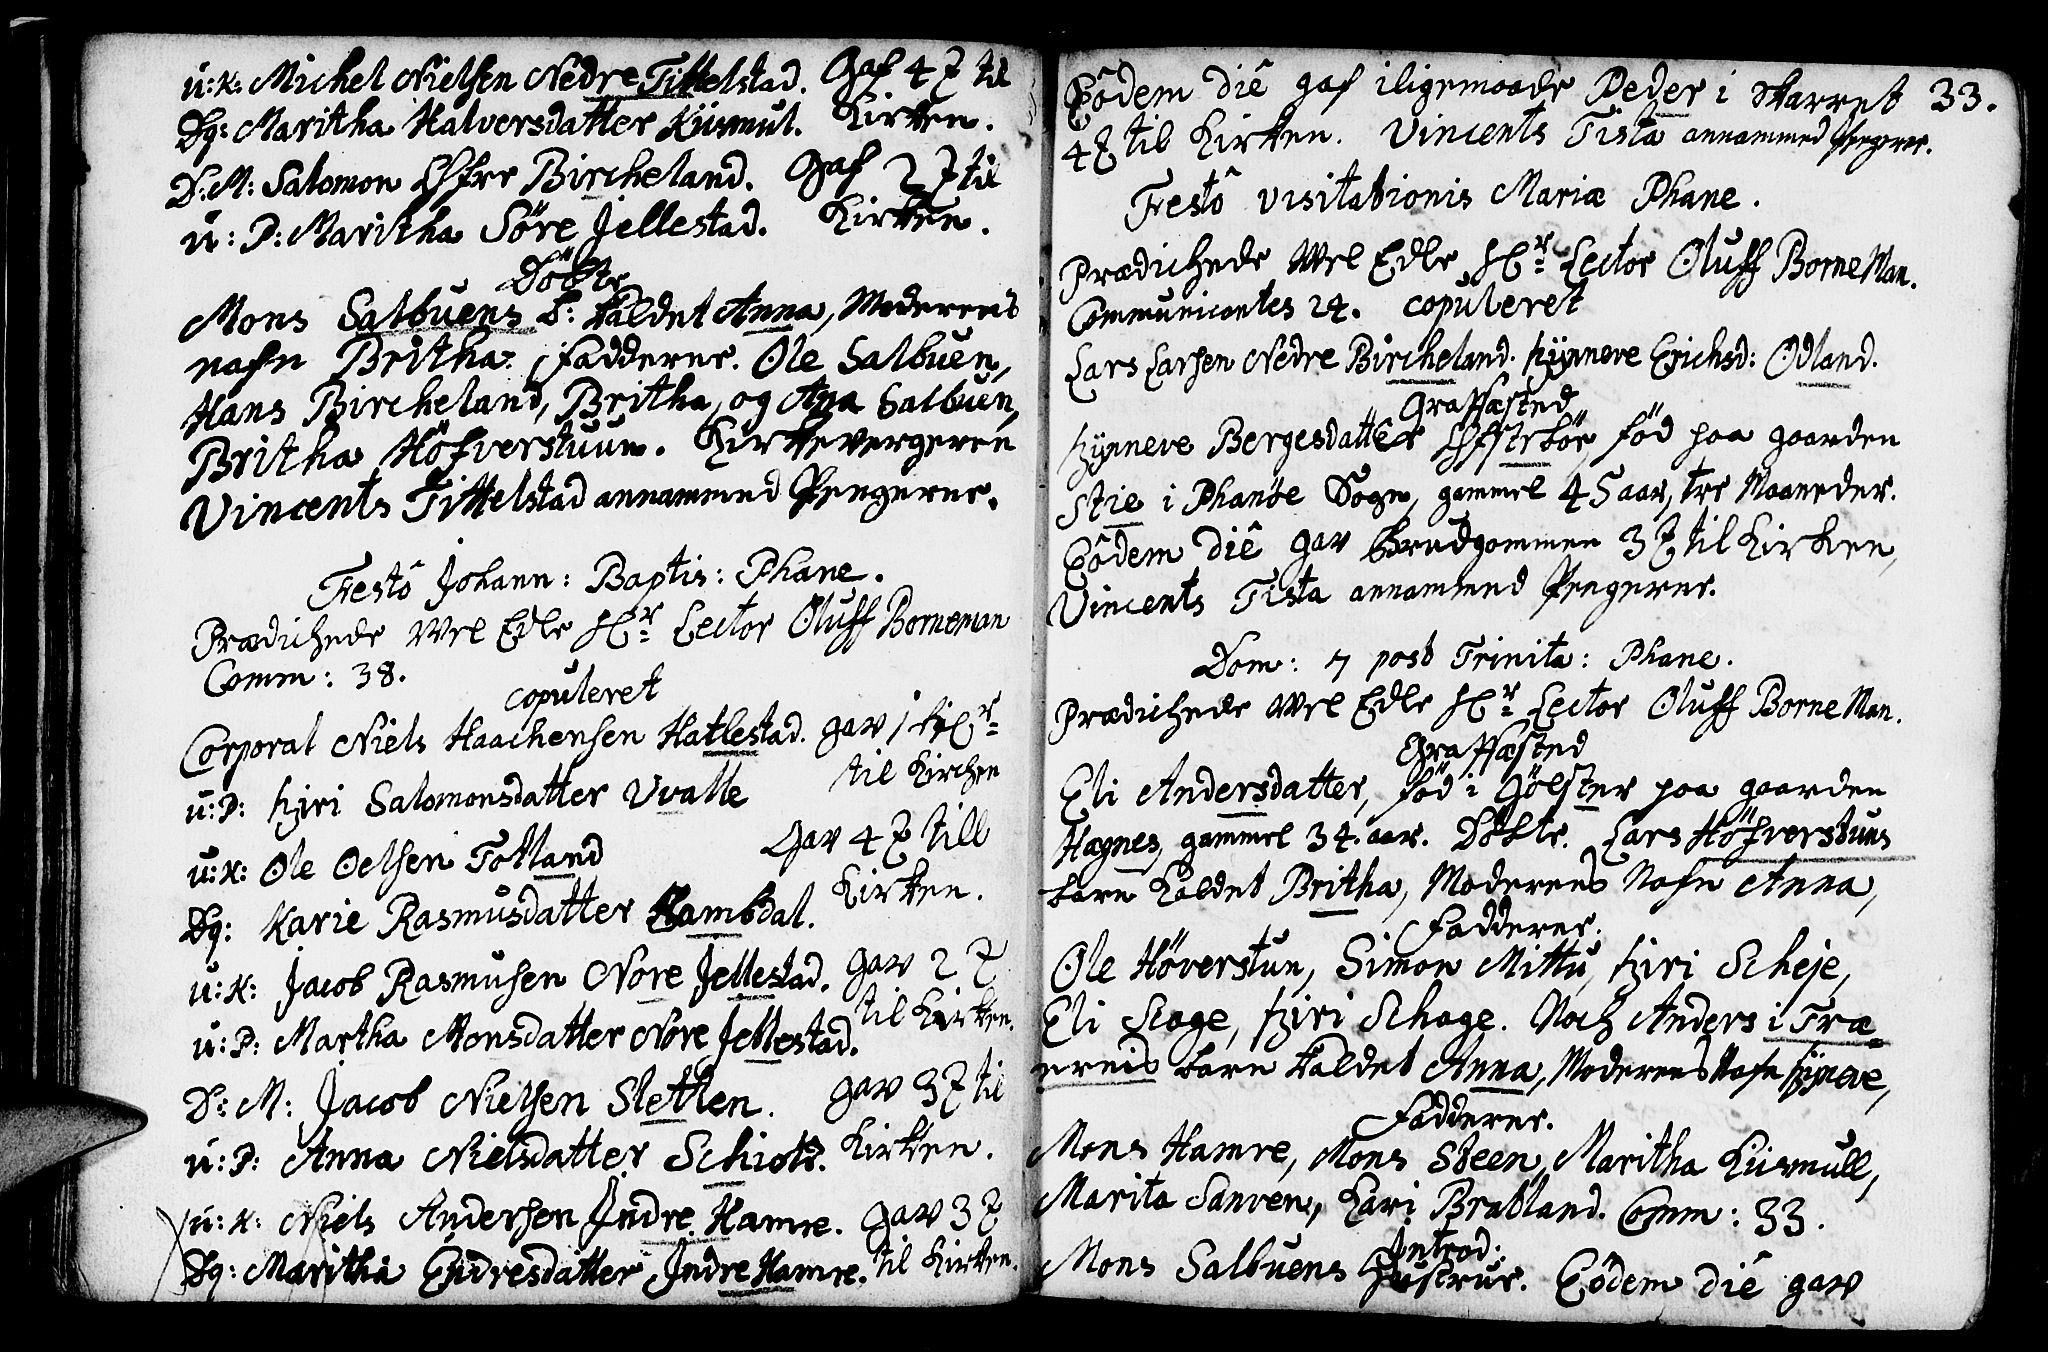 u: K: Michel Nielsen Nedre Tittelstad. Gaf 4 ℥ til
Dg: Maritha Halversdatter Kiismul. Kirken.
D: M: Salomon Birckeland. Gaf 2 ℥ til
u: P: Maritha Söre Jellestad. Kirken.
Döbte
Mons Salbuens b: kaldet Anna, Moderens
nafn Britha. Fadderne. Ole Salbuen,
Hans Bircheland, Britha, og Ana Salbuen,
Britha Höfverstuun. Kirkevergeren
Vincents Tittelstad annammed Pengerne.
Festô Johann: Baptis: Phane.
Prædichede Wel Edle Hr Lector Oluff Borneman
Comm: 38.
copuleret
Corporal Niels Haachensen Hatlestad. gav 1
u: P: Siri Salomonsdatter Uvalle til Kirchen
u: K: Ole Oelsen Totland Gav 4 ℥ till
Dg: Karie Rasmusdatter Hambdal. Kirken.
u: K: Jacob Rasmusen Nore Jellestad. gav 2 ℥
u: P: Martha Monsdatter Nore Jellestad. til Kirken.
D: M: Jacob Nielsen Sletten. gav 3 ℥ til
u: P: Anna Nielsdatter Schiold. Kirken.
u: K: Niels Andersen Indre Hamre. gav 3 ℥
Dg: Maritha Endresdatter Indre Hamre. til Kirken.
Eôdem diê gaf iligemaade Peder i Skarret 33.
4 ℥ til Kirken. Vincents Tista annammed Pengerne.
Festô visitationis Mariæ Phane.
Prædichede Wel Edle Hr Lector Oluff Borne Man.
Communicantes 24. copuleret
Lars Larsen Nedre Bircheland. Synneve Erichsd: Odland.
Graffæsted
Synneve Bergesdatter föd paa gaarden
Stie i Phanöe Sogn, gammel 45 aar, tre Maaneder.
Eôdem diê gav Brudgommen 3 ℥ til Kirken,
Vincents Tista annammed Pengerne.
Dom: 7 post Trinita: Phane.
Prædichede Wel Edle Hr Lector Oluff Borne Man.
Graffæsted
Eli Andersdatter, föd i Jölster paa gaarden
Hægnes, gammel 34. aar. Döbte. Lars Höfverstuns
barn kaldet Britha, Moderens Nafn Anna,
Fadderne.
Ole Höverstun, Simon Mittu, Siri Scheje,
Eli Scage, Siri Schage. Noch Anders i Træ-
ereis barn kaldet Anna, Moderens Nafn Synneve,
Fadderne.
Mons Hamre, Mons Steen, Maritha Kiismull,
Marita Sanven, Kari Bratland. Comm: 33.
Introd:
Mons Salbuens Hustrue. Eôdem diê gav